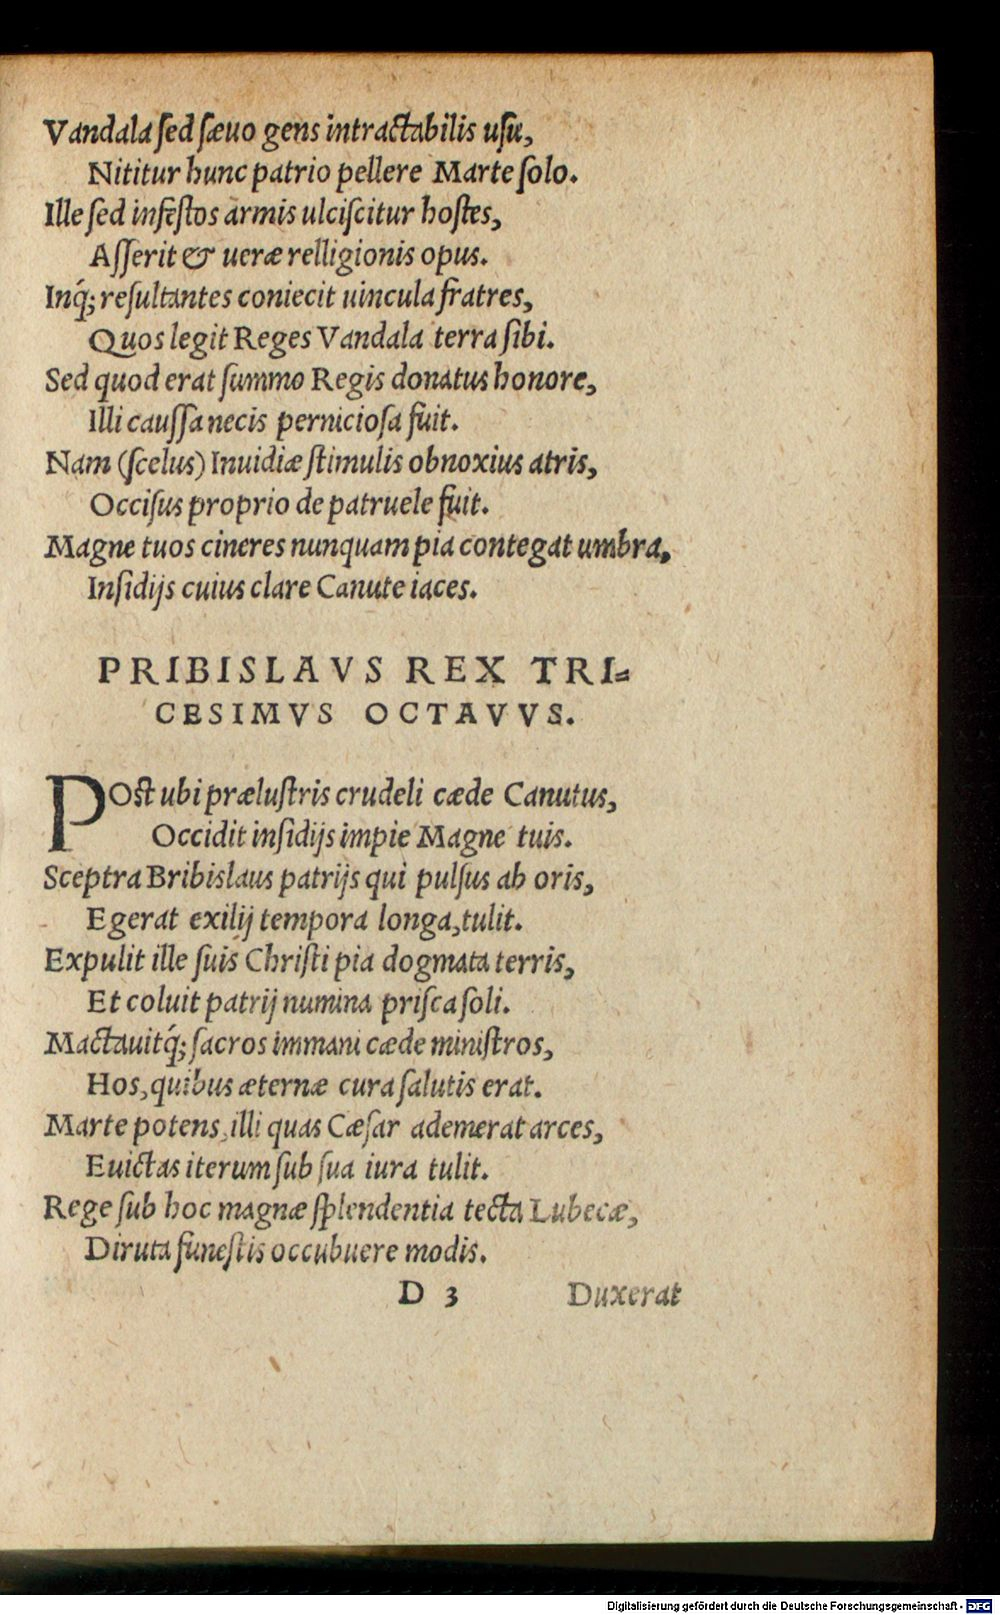 Vandala sed sæuo gens intractabilis usu,
Nititur hunc patrio pellere Marte solo.
Ille sed infestos armis ulciscitur hostes,
Asserit & ueræ relligionis opus.
Inq́; resultantes coniecit uincula fratres,
Quos legit Reges Vandala terra sibi.
Sed quod erat summo Regis donatus honore,
Illi caussa necis perniciosa fuit.
Nam (scelus) Inuidiæ stimulis obnoxius atris,
Occisus proprio de patruele fuit.
Magne tuos cineres nunquam pia contegat umbra,
Insidijs cuius clare Canute iaces.
PRIBISLAVS REX TRI=
CESIMVS OCTAVVS.
POst ubi prælustris crudeli cæde Canutus,
Occidit insidijs impie Magne tuis.
Sceptra Bribislaus patrijs qui pulsus ab oris,
Egerat exilij tempora longa, tulit.
Expulit ille suis Christi pia dogmata terris,
Et coluit patrij numina prisca soli.
Mactauitq́; sacros immani cæde ministros,
Hos, quibus æternæ cura salutis erat.
Marte potens, illi quas Cæsar ademerat arces,
Euictas iterum sub sua iura tulit.
Rege sub hoc magnæ splendentia tecta Lubecæ,
Diruta funestis occubuere modis.
D 3 Duxerat
Digitalisierung gefördert durch die Deutsche Forschungsgemeinschaft - DFG